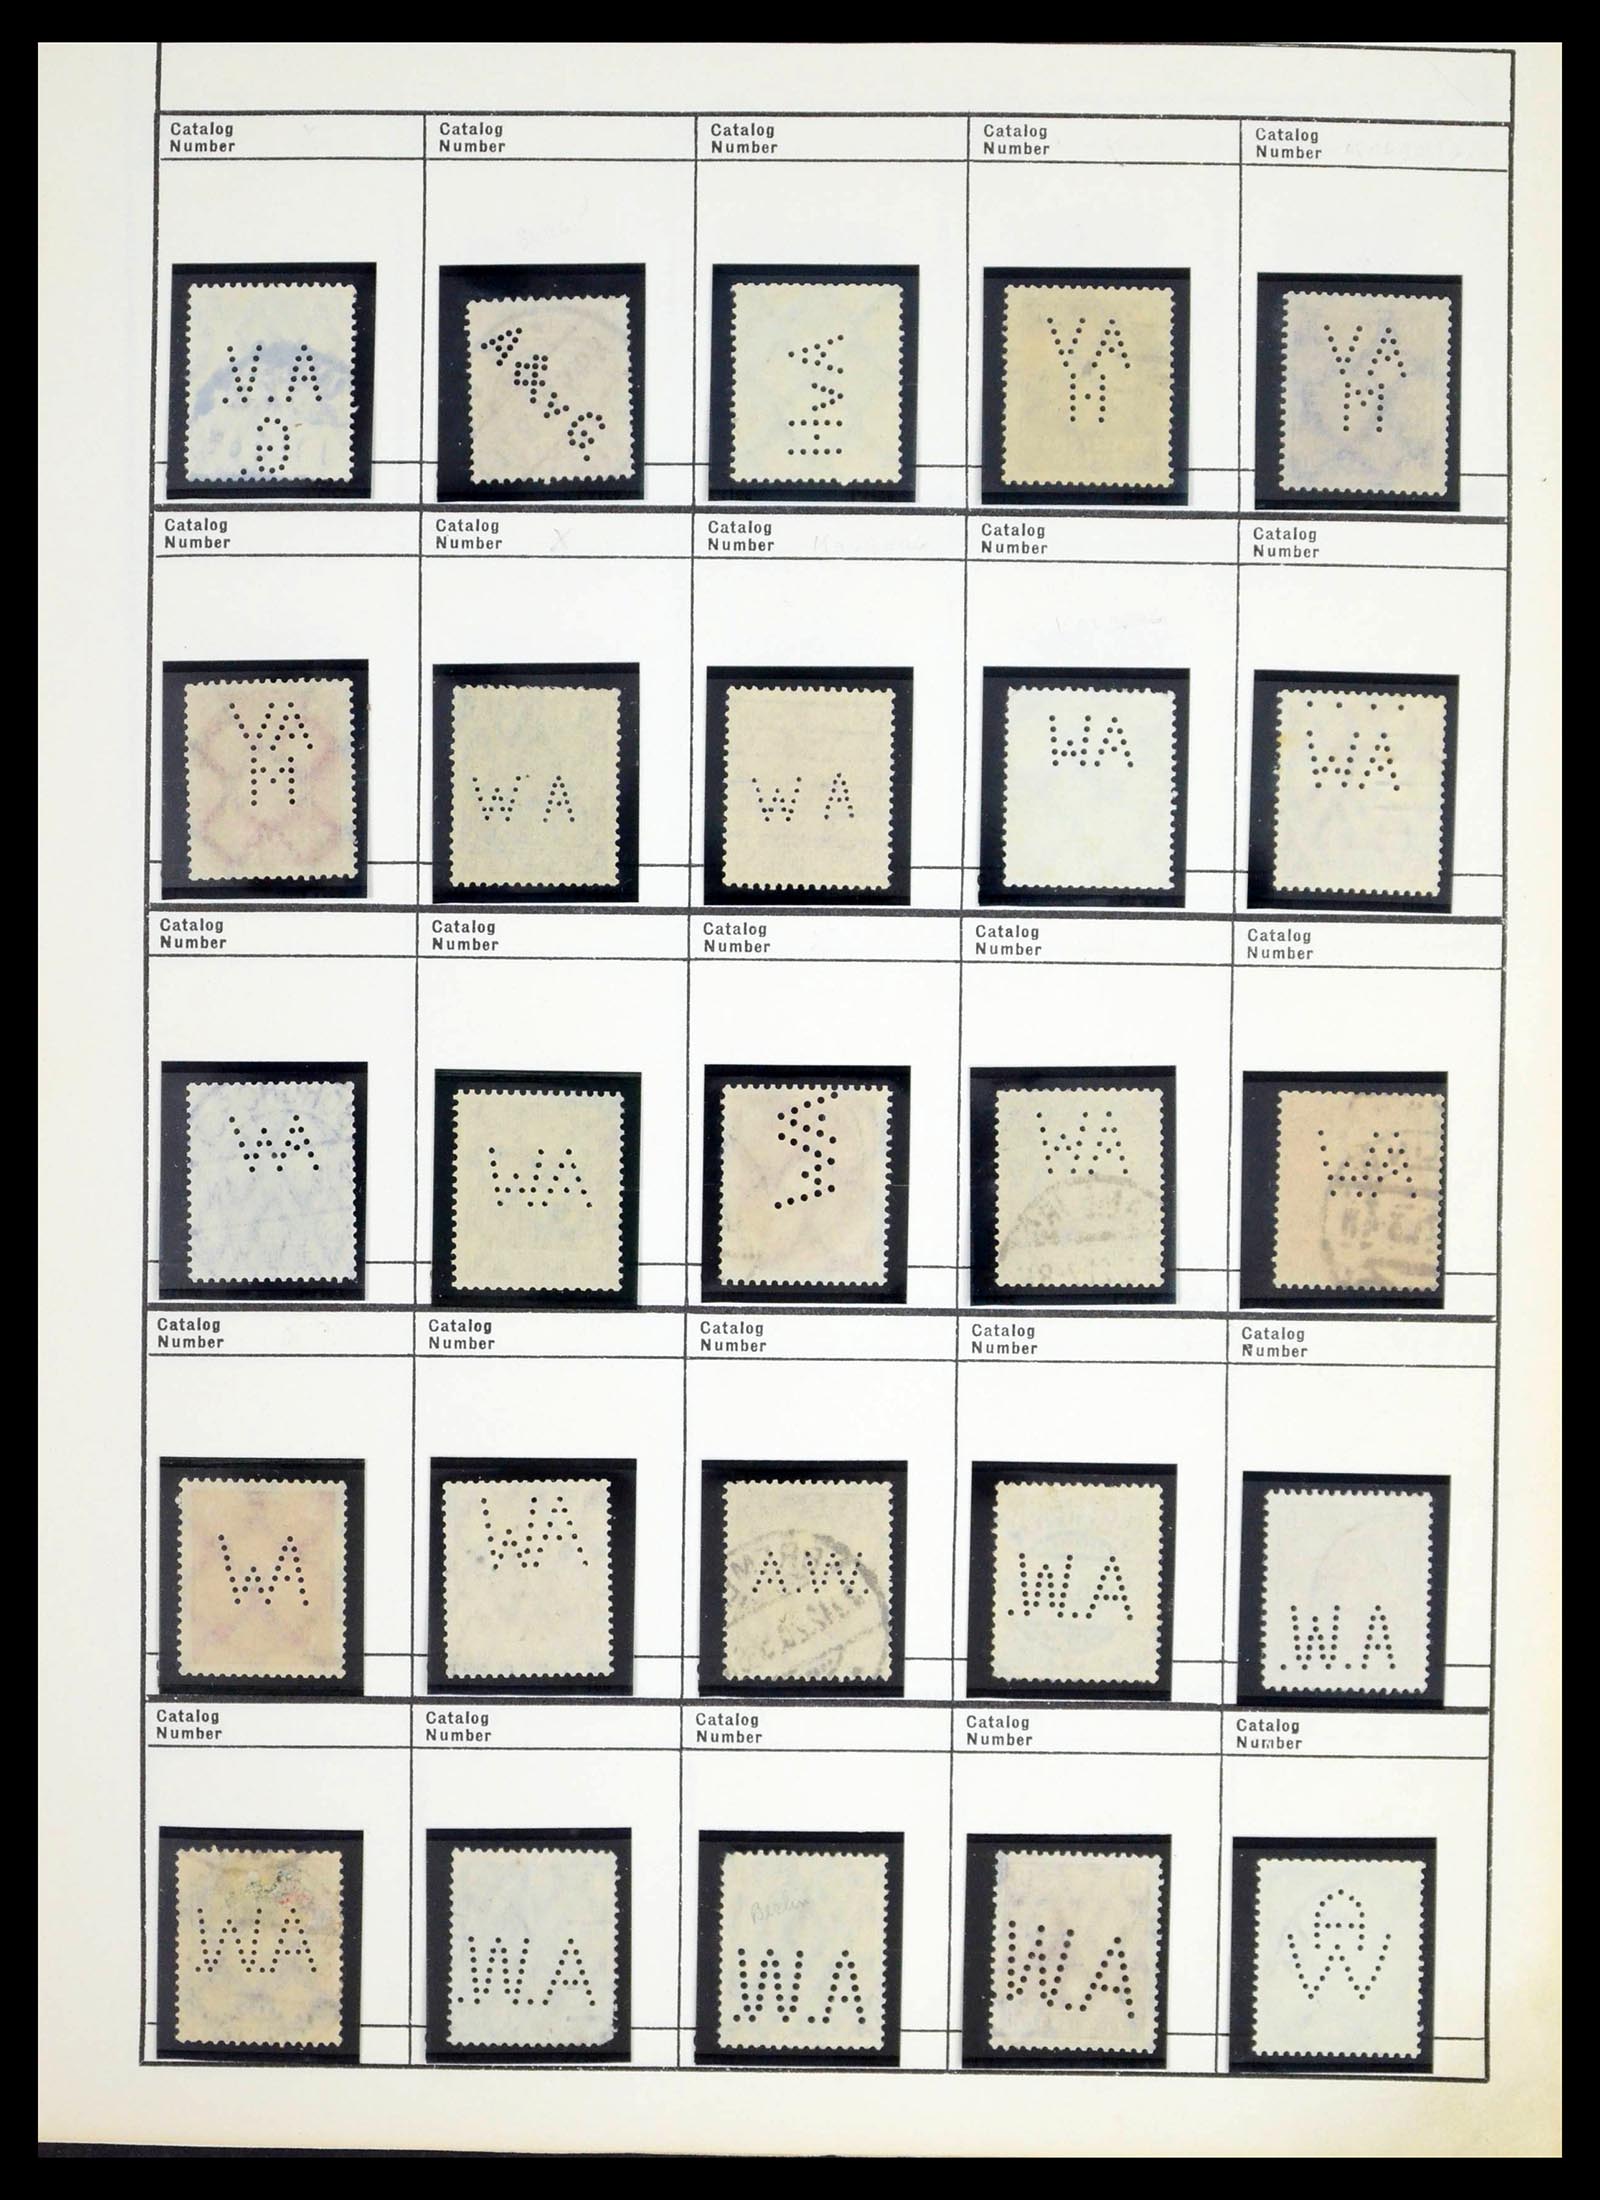 Catalog Number Catalog Number Catalog Number Catalog Number Catalog Number
V.A.G.
VAH
VA
H
VA
M
Catalog Number Catalog Number X Catalog Number Catalog Number Catalog Number
VA
M
WA
WA
WA
WA
Catalog Number Catalog Number Catalog Number Catalog Number Catalog Number
WA
WA
WA
WA
WA
Catalog Number Catalog Number Catalog Number Catalog Number Catalog Number
WA
WA
AW
W.A.
W.A.
Catalog Number Catalog Number Catalog Number Catalog Number Catalog Number
WA
W.A.
Berlin
W.A.
W.A.
A
W